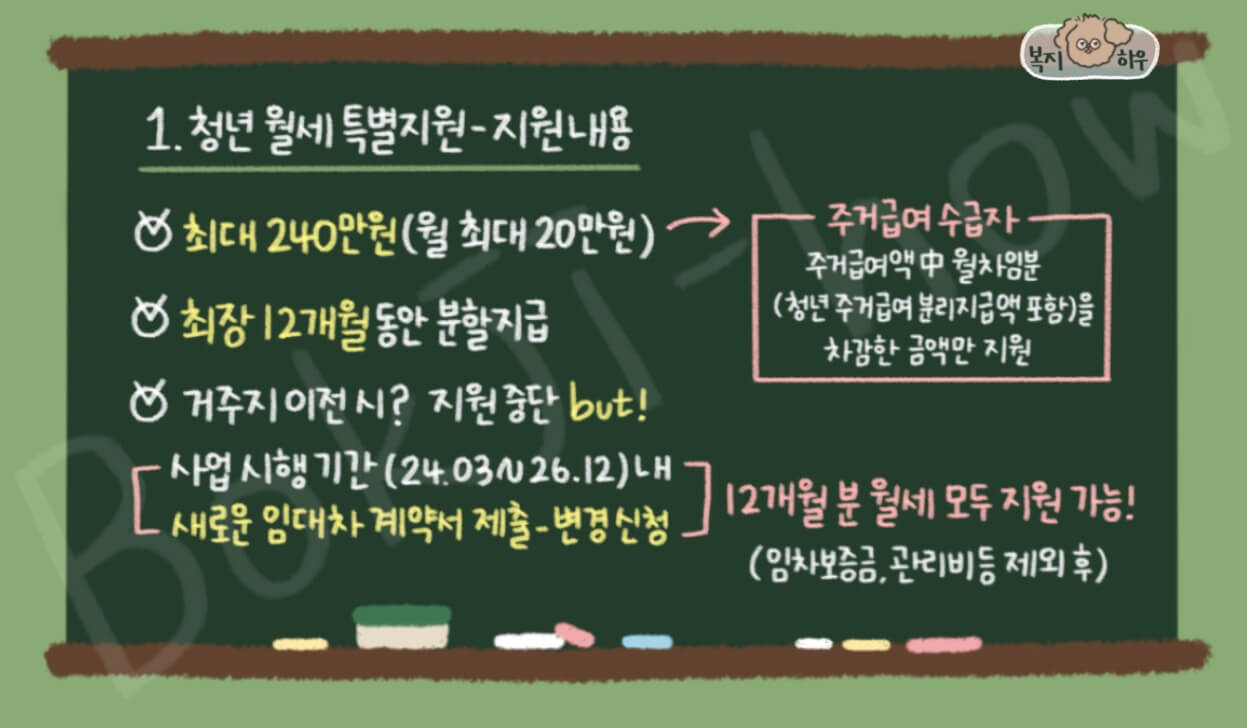 복지 하우
1. 청년 월세 특별지원 - 지원내용
최대 240만원(월 최대 20만원)
최장 12개월 동안 분할지급
거주지 이전 시? 지원 중단 but!
사업 시행 기간 (24.03~26.12) 내
새로운 임대차 계약서 제출 - 변경 신청
주거급여 수급자
주거급여액 中 월차임분
(청년 주거급여 분리지급액 포함)을
차감한 금액만 지원
12개월 분 월세 모두 지원 가능!
(임차보증금, 관리비 등 제외 후)
Bokji-how